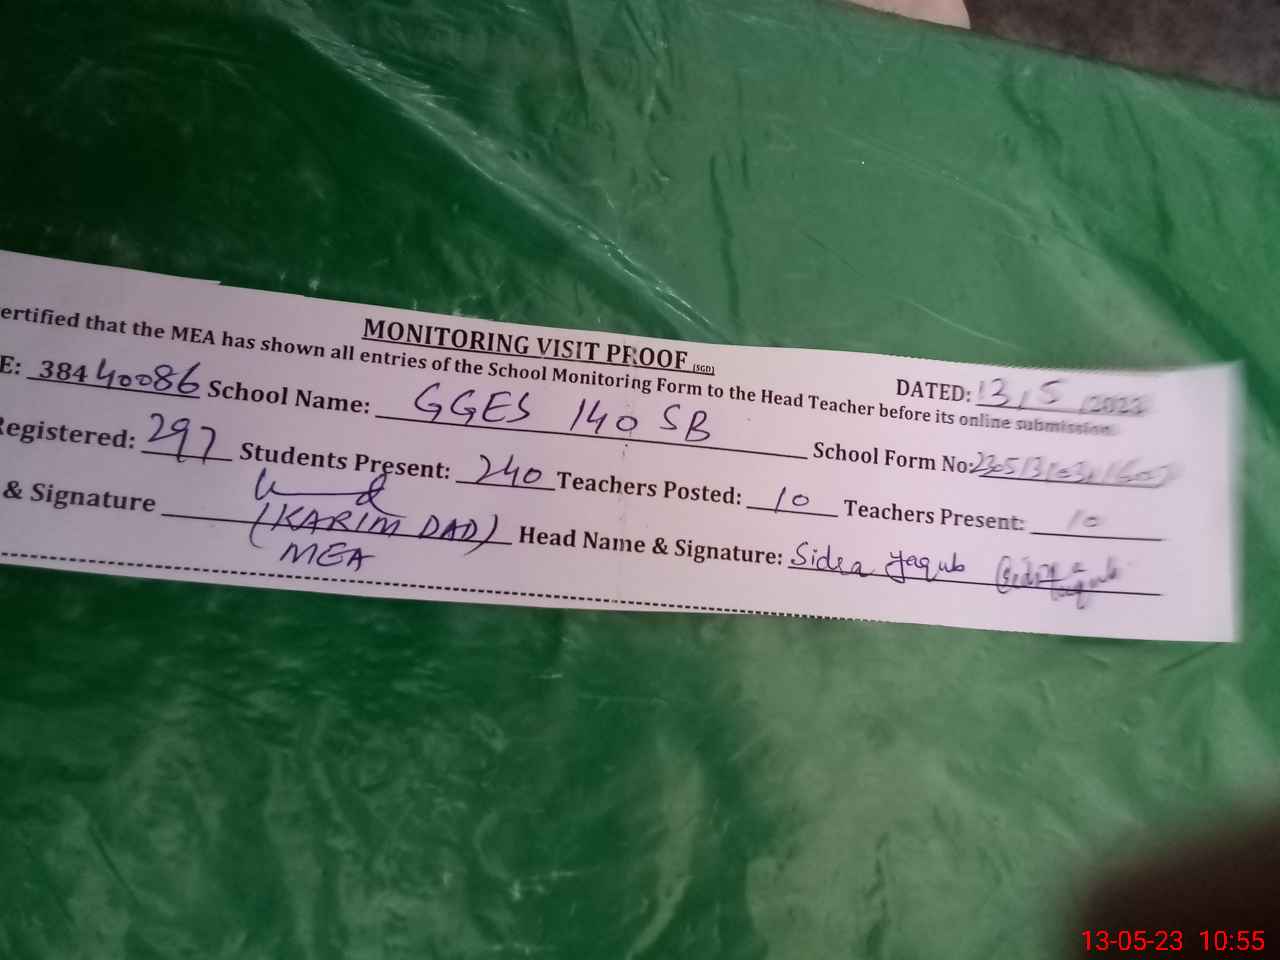 MONITORING VISIT PROOF (SGD)
DATED: 13, 5 /2023
ertified that the MEA has shown all entries of the School Monitoring Form to the Head Teacher before its online submission.
E: 38440086 School Name: GGES 140 SB School Form No:
Registered: 297 Students Present: 240 Teachers Posted: 10 Teachers Present: 10
& Signature (KARIM DAD) Head Name & Signature: Sidra Yaqub
MEA
13-05-23 10:55